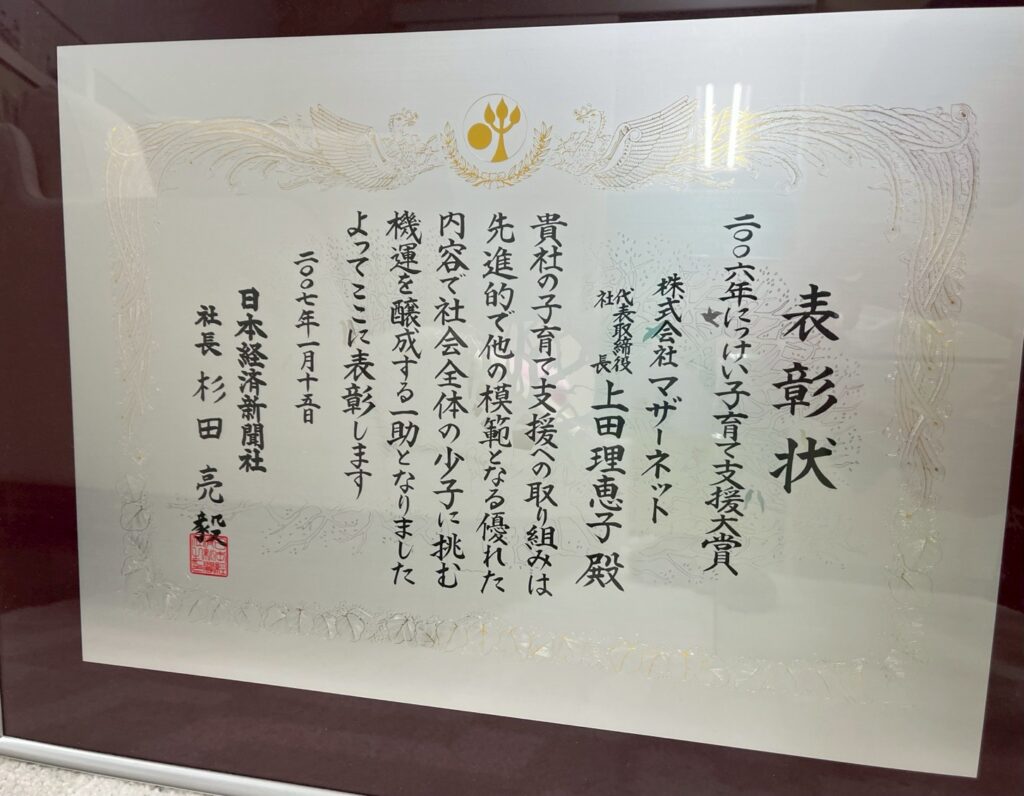 表彰状
二〇〇六年にっけい子育て支援大賞
株式会社 マザーネット
代表取締役
社長
上田理恵子 殿
貴社の子育て支援への取り組みは
先進的で他の模範となる優れた
内容で社会全体の少子に挑む
機運を醸成する一助となりました
よってここに表彰します
二〇〇七年一月十五日
日本経済新聞社
社長 杉田 亮毅